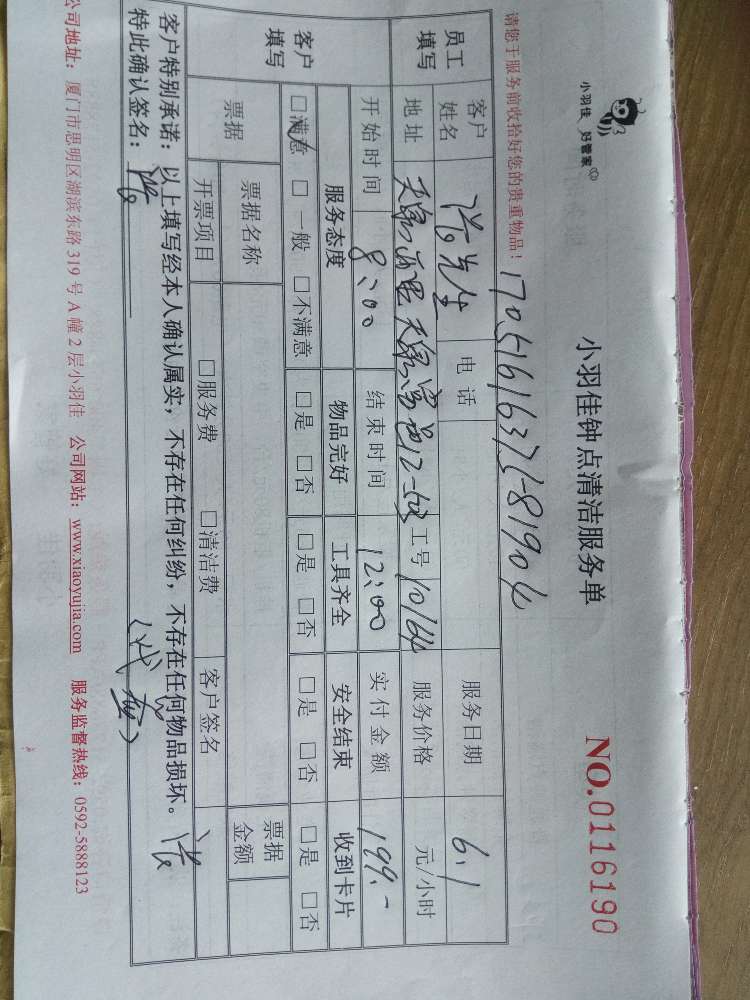 小羽佳 好管家
小羽佳钟点清洁服务单
NO.0116190
请您于服务前收拾好您的贵重物品!
员工填写
客户姓名
先生
电话
服务日期 6.1
地址
12-503
工号 10164
服务价格 元/小时
开始时间 8:00
结束时间 12:00
实付金额 199.-
客户填写
服务态度 物品完好 工具齐全 安全结束 收到卡片
□满意 □一般 □不满意 □是 □否 □是 □否 □是 □否 □是 □否
票据
票据名称
票据金额
开票项目 □服务费 □清洁费 客户签名
客户特别承诺:以上填写经本人确认属实,不存在任何纠纷,不存在任何物品损坏。
特此确认签名:
公司地址:厦门市思明区湖滨东路 319 号 A 幢 2 层小羽佳 公司网站:www.xiaoyujia.com 服务监督热线:0592-5888123